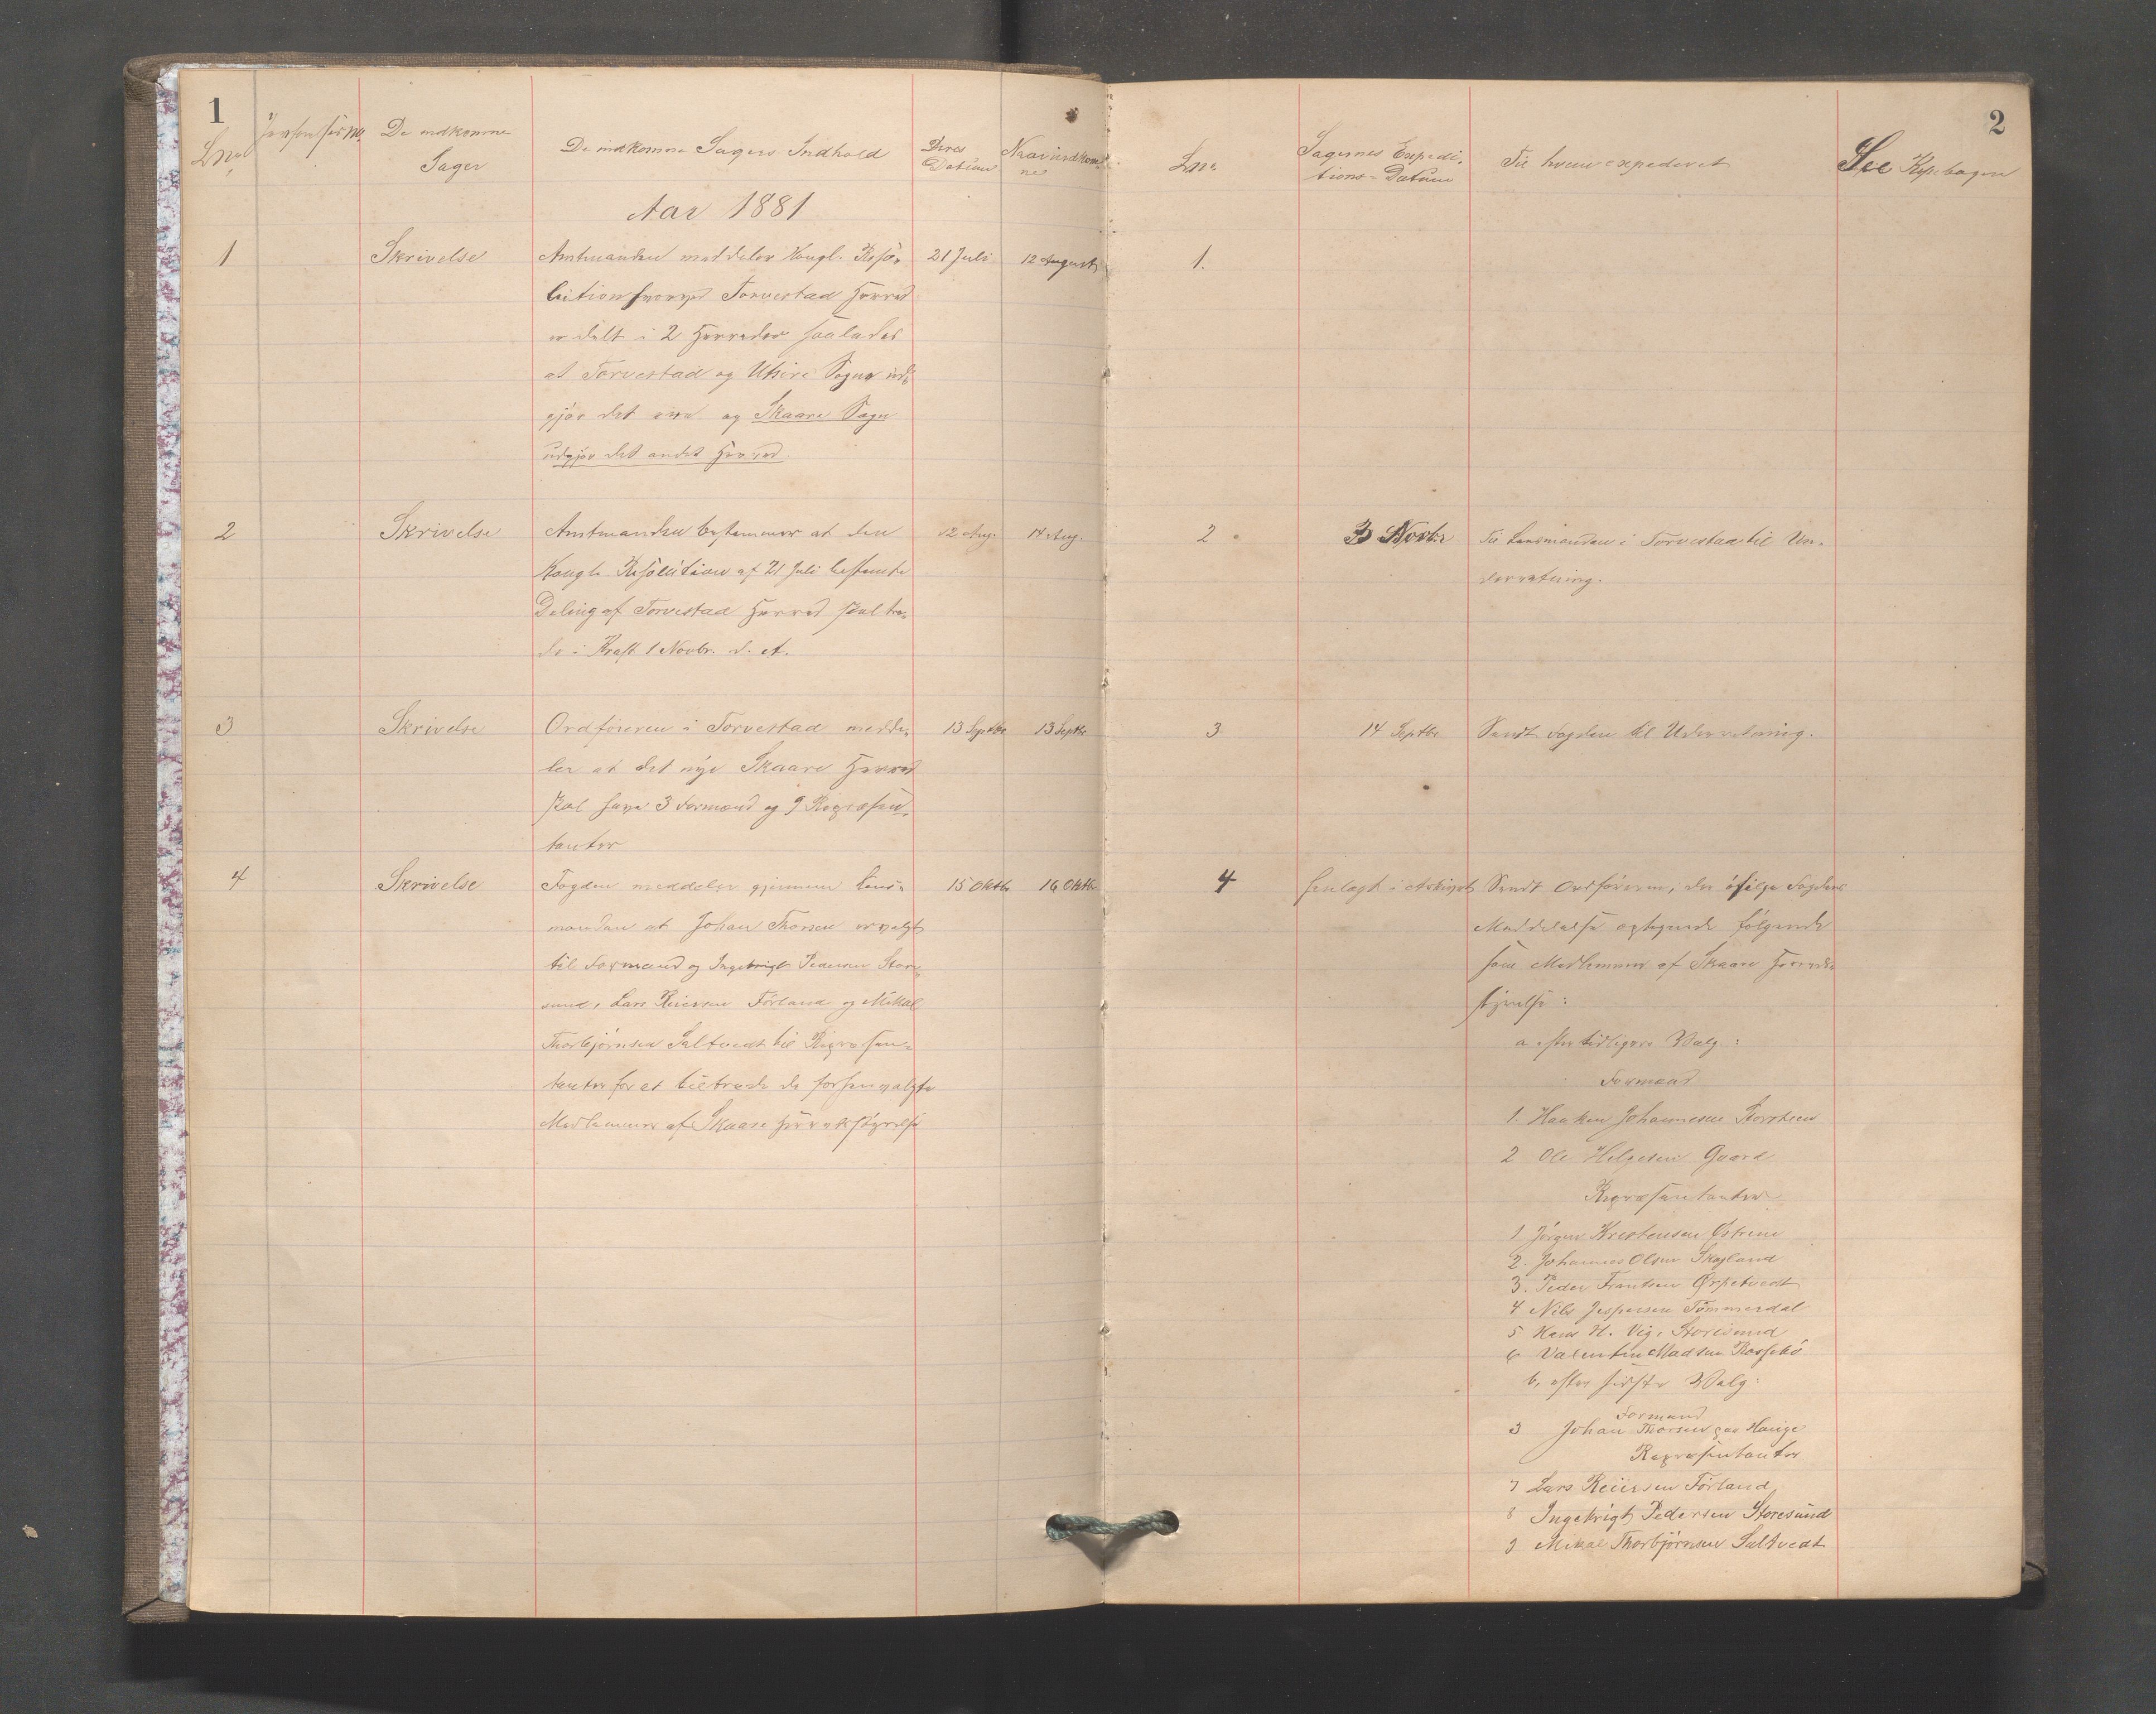 1
Lno
De indkomne
Sager
De indkomne Sagers Indhold
Deres
Datum
Naar indkom-
ne
Aar 1881
1
Skrivelse
Amtmanden meddeler Kongl. Reso-
lution hvorved Torvestad Herred
er delt i 2 Herreder saaledes
at Torvestad og Utsire Sogne ud-
gjør det ene og Skaare Sogn
udgjør det andet Herred
21 Juli
12 August
2
Skrivelse
Amtmanden bestemmer at den
Kongl. Resolution af 21 Juli bestemte
Deling af Torvestad Herred skal træ-
de i Kraft 1 Novbr. d. A.
12 Aug.
14 Aug.
3
Skrivelse
Ordføreren i Torvestad medde-
ler at det nye Skaare Herred
skal have 3 Formænd og 9 Repræsen-
tanter
13 Septbr
13 Septbr
4
Skrivelse
Fogden meddeler gjennem Lens-
manden at Johan Thorsen er valgt
til Formand og Ingebrigt Pedersen Store-
sund, Lars Reiersen Førland og Mikal
Thorbjørnsen Saltvedt til Repræsen-
tanter for at tiltræde de forhen valgte
Medlemmer af Skaare Herredsstyrelse
15 Oktbr
16 Oktbr
2
Lno
Sagernes Expedi-
tions-Datum
Til hvem expederet
See Kopibogen
1.
2
3 Novbr
Til Lensmanden i Torvestad til Un-
derretning.
3
14 Septbr
Sendt Fogden til Underretning.
4
henlagt i Arkivet
Sendt Ordføreren, der ifølge Fogdens
Meddelelse optegnede følgende
som Medlemmer af Skaare Herreds-
styrelse:
a efter tidligere Valg:
Formænd
1. Haaken Johannesen
2 Ole Helgesen Gaard
Repræsentanter
1 Jørgen Kristensen Østrem
2. Johannes Olsen Skogland
3. Peder Frantsen Ørpetvedt
4 Nils Jespersen Tømmerdal
5 Hans H. Vig, Storesund
6 Valentin Madsen Røssebø
b, efter sidste Valg:
Formand
3 Johan Thorsen paa Hauge
Repræsentanter
7 Lars Reiersen Førland
8 Ingebrigt Pedersen Storesund
9 Mikal Thorbjørnsen Saltvedt